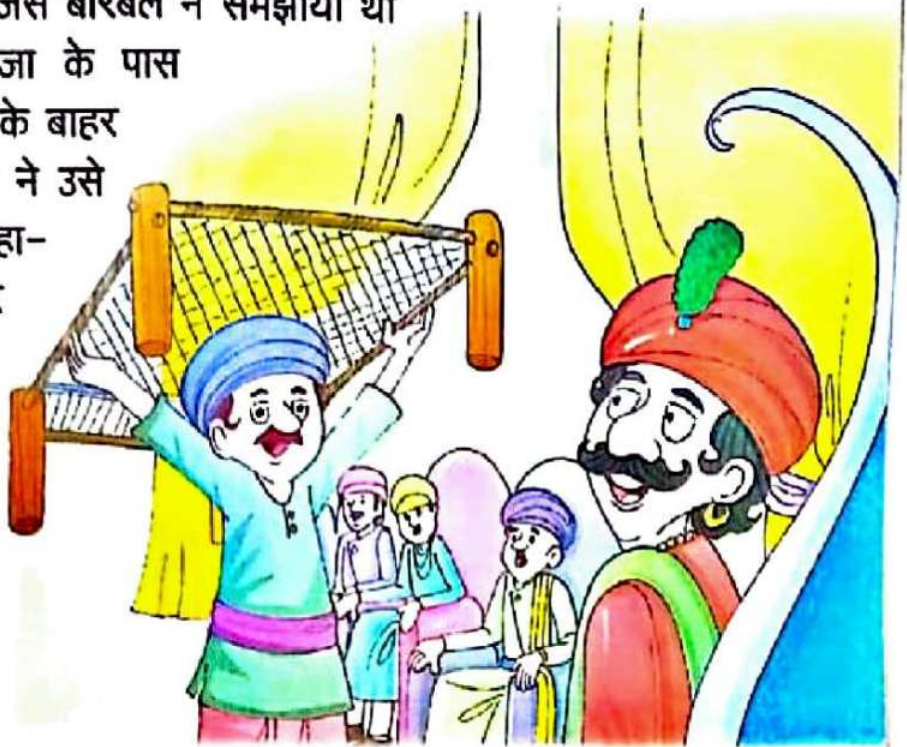 बीरबल ने समझाया था
के पास
के बाहर
ने उसे